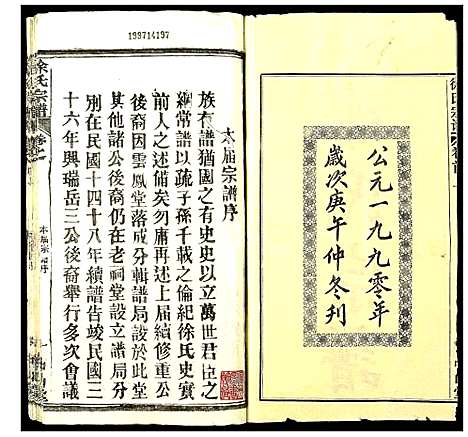 公元一九九零年
歲次庚午仲冬刊
199714197
本屆宗譜序
族有譜猶國之有史史以立萬世君臣之
綱常譜以疏子孫千載之倫紀徐氏史實
前人之述備矣勿庸再述上屆續修重公
後裔因雲鳳堂落成分輯譜局設於此堂
其他諸公後裔仍在老祠堂設立譜局分
別在民國十四十八年續譜告竣民國三
十六年興瑞岳三公後裔舉行多次會議
徐氏宗譜
本屆宗譜序